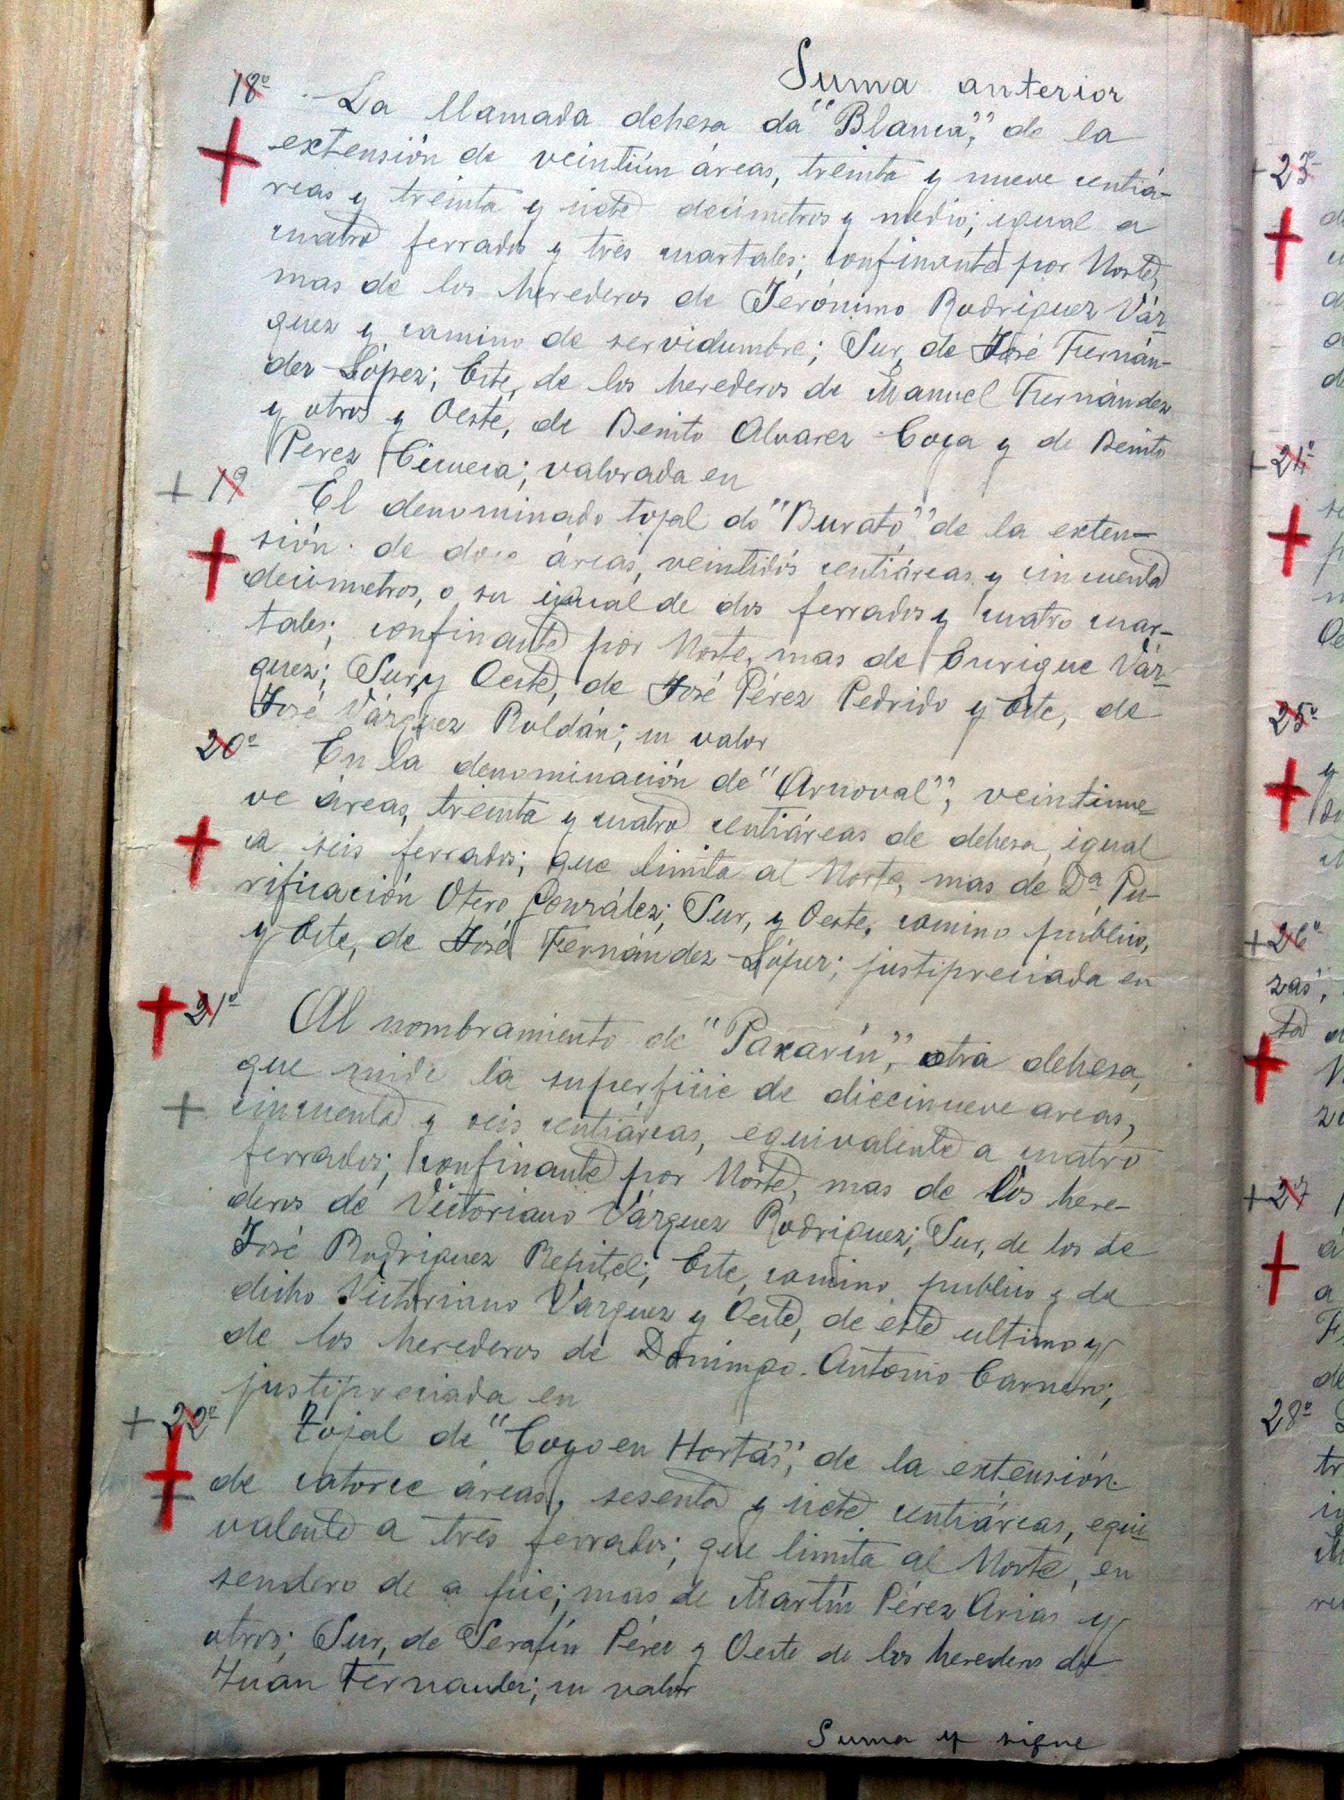 Suma anterior
18º La llamada dehesa da "Blanca", de la
extensión de veintiún áreas, treinta y nueve centiá-
reas y treinta y siete decímetros y medio; igual a
cuatro ferrados y tres cuartales; confinante por Norte,
mas de los herederos de Jerónimo Rodriguez Váz-
quez y camino de servidumbre; Sur, de José Fernán-
dez López; Este, de los herederos de Manuel Fernández
y otros y Oeste, de Benito Alvarez Coya y de Benito
Perez; valorada en
+ 19 El denominado tojal do "Burato" de la exten-
sión de doce áreas, veintidós centiáreas y cincuenta
decímetros, o su igual de dos ferrados y cuatro cuar-
tales; confinante por Norte, mas de Enrique Váz-
quez; Sur y Oeste, de José Pérez Pedrido y Este, de
José Vázquez Roldán; su valor
20º En la denominación de "Arnoval", veintinue-
ve áreas, treinta y cuatro centiáreas de dehesa, igual
a seis ferrados; que limita al Norte, mas de Dª Pu-
rificación Otero González; Sur, y Oeste, camino público,
y Este, de José Fernández López; justipreciada en
21º Al nombramiento de "Paxarín", otra dehesa,
que mide la superficie de diecinueve areas,
+ cincuenta y seis centiáreas, equivalente a cuatro
ferrados; confinante por Norte, mas de los here-
deros de Victoriano Vázquez Rodriguez; Sur, de los de
José Rodriguez; Este, camino publico y de
dicho Victoriano Vázquez y Oeste, de este ultimo y
de los herederos de Domingo Antonio Carnero;
justipreciada en
+ 22º Tojal de "Coyo en Hortás", de la extensión
de catorce áreas, sesenta y siete centiáreas, equi-
valente a tres ferrados; que limita al Norte, en
sendero de a pie; mas de Martín Pérez Arias y
otros; Sur, de Serafín Pérez y Oeste de los herederos de
Juan Fernandez; su valor
Suma y sigue
+ 23º
+ 24º
25º
+ 26º
zas,
+ 27
28º